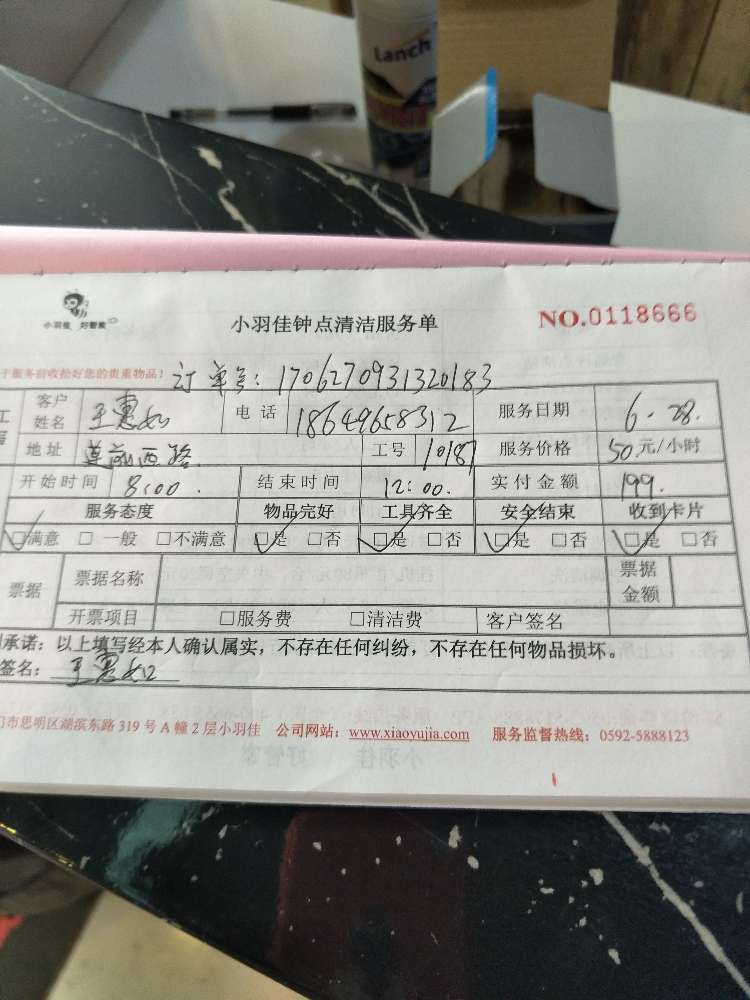 Lanch
小羽佳 好管家
小羽佳钟点清洁服务单
NO.0118666
于服务前收拾好您的贵重物品!
订单号: 1706270931320183
客户姓名 王惠如 电话 18649658312 服务日期 6.28.
地址 莲前西路 工号 10187 服务价格 50元/小时
开始时间 8:00. 结束时间 12:00. 实付金额 199.
服务态度 物品完好 工具齐全 安全结束 收到卡片
☑满意 □一般 □不满意 ☑是 □否 ☑是 □否 ☑是 □否 ☑是 □否
票据 票据名称 票据金额
开票项目 □服务费 □清洁费 客户签名
承诺：以上填写经本人确认属实，不存在任何纠纷，不存在任何物品损坏。
签名: 王惠如
门市思明区湖滨东路 319 号 A 幢 2 层小羽佳 公司网站: www.xiaoyujia.com 服务监督热线: 0592-5888123